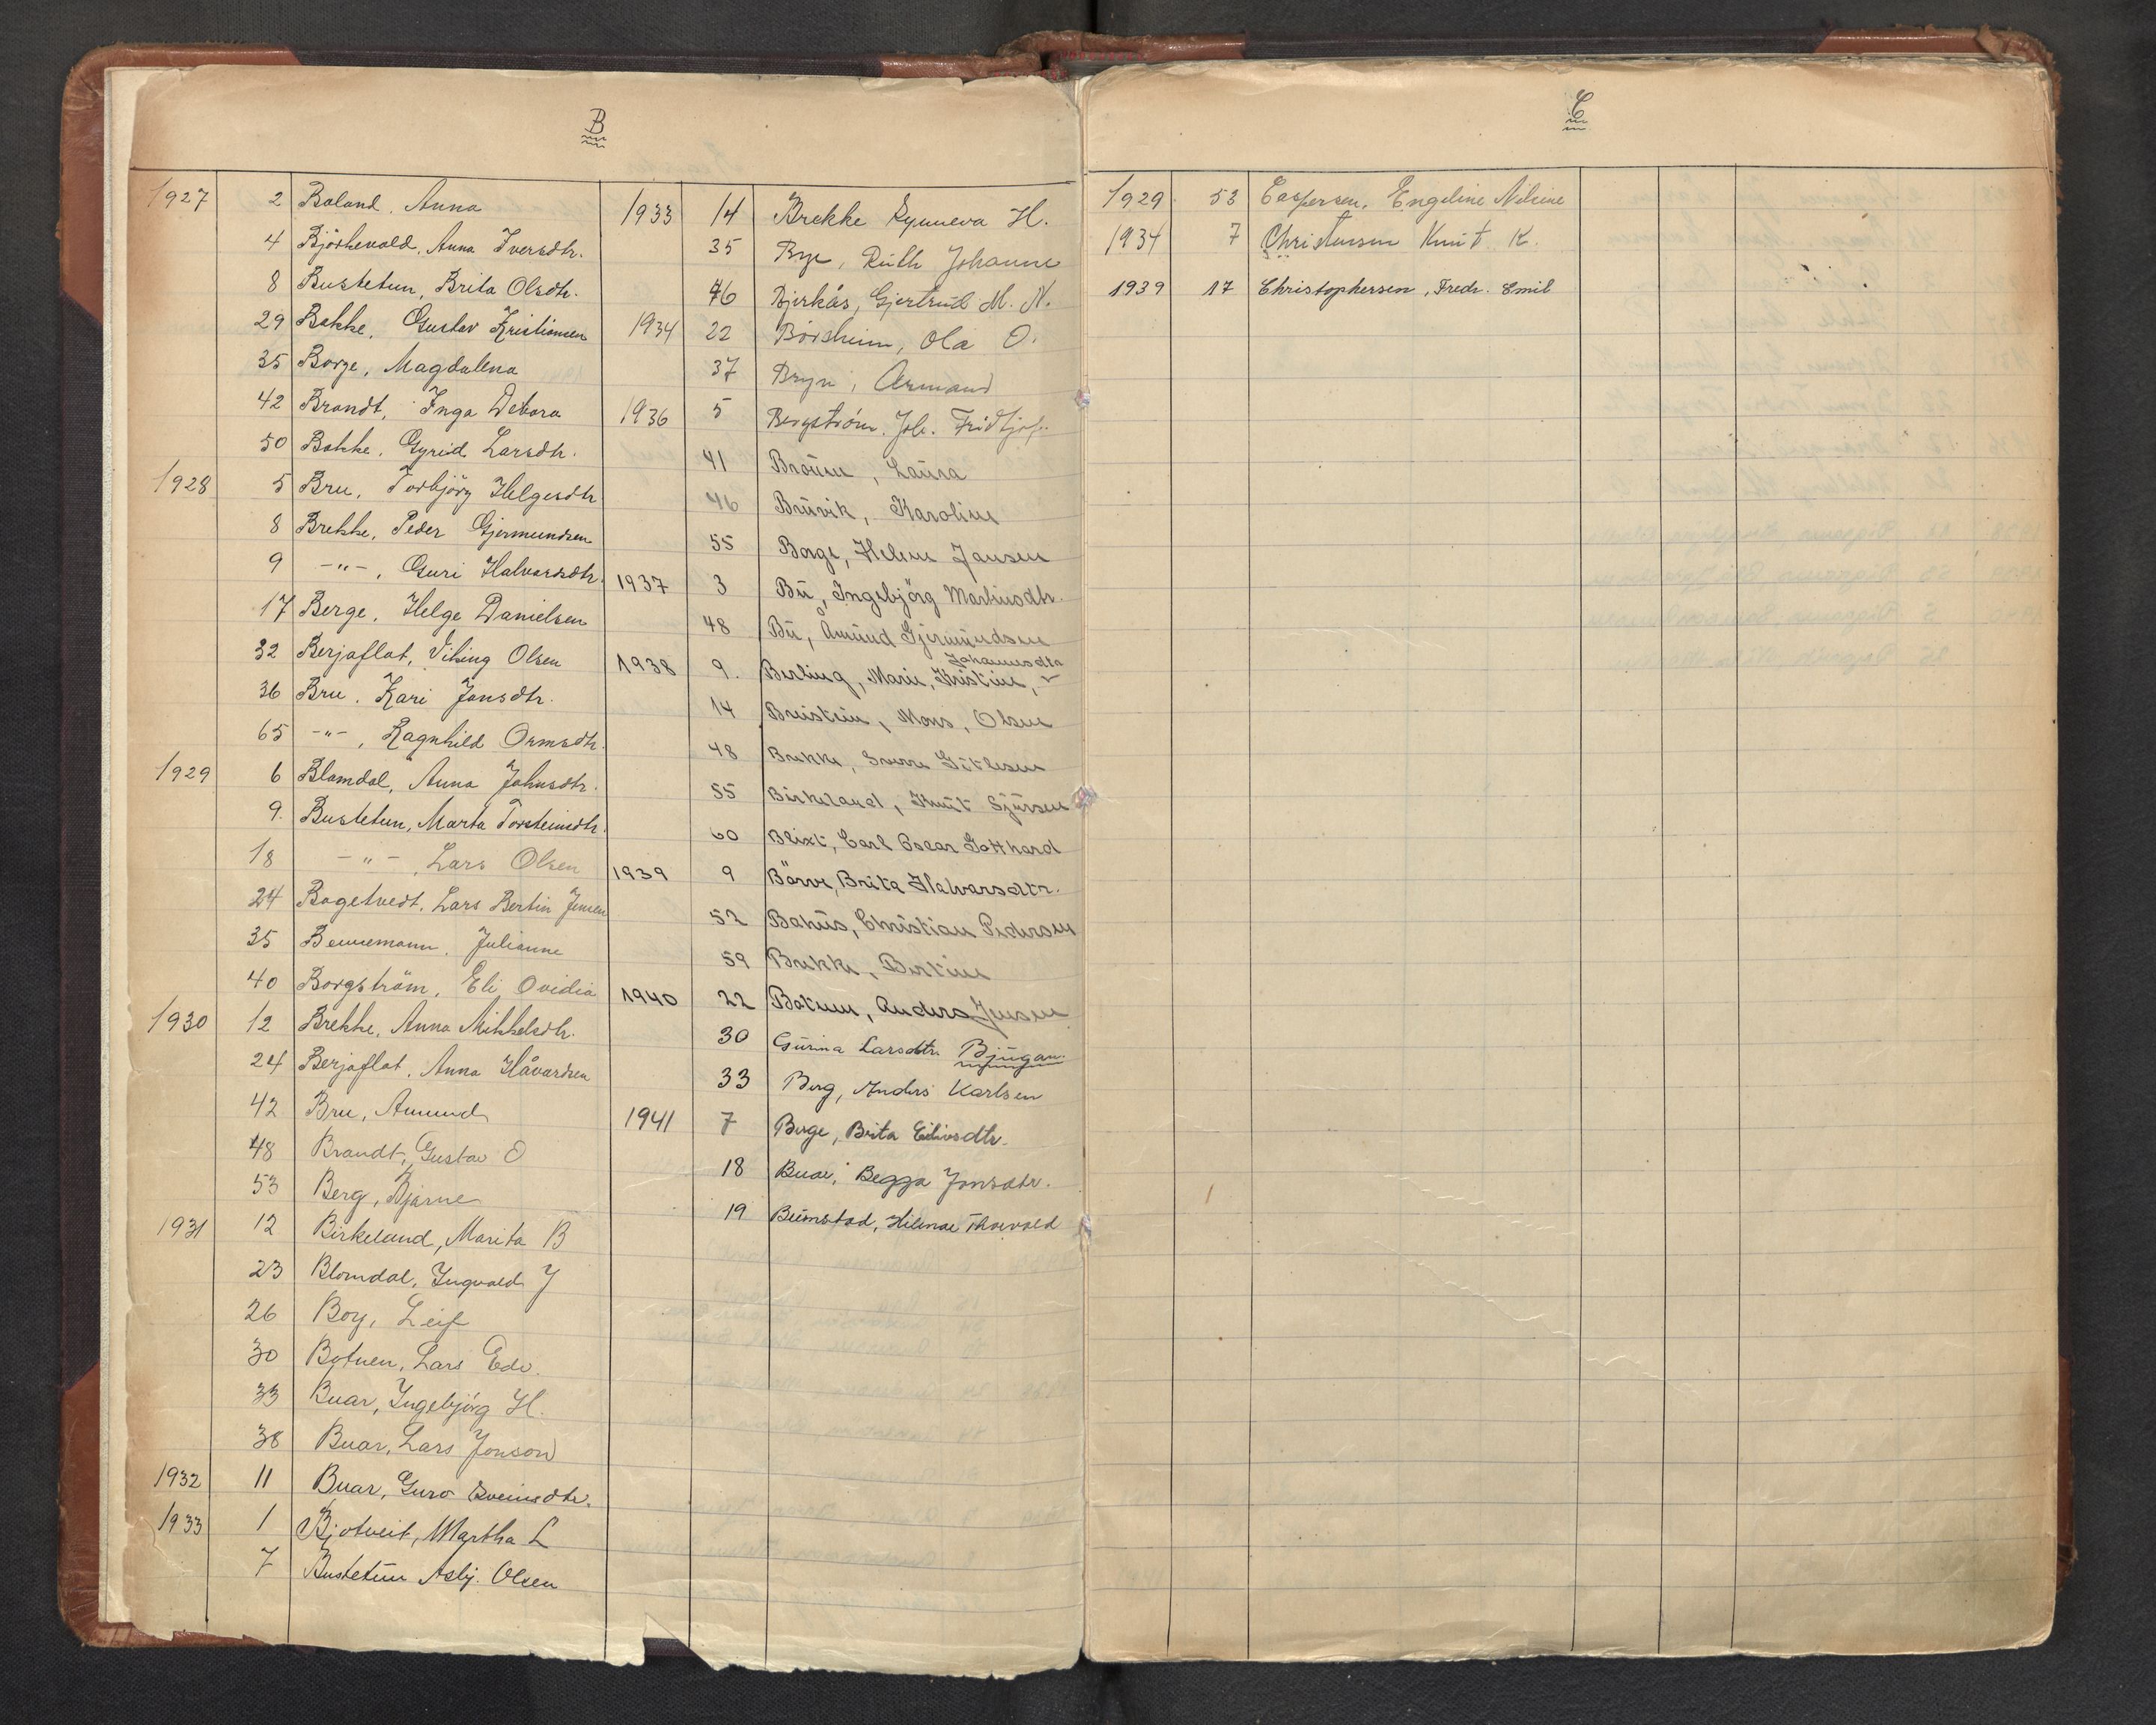 B
1927 2 Boland, Anna
4 Björkevold, Anna Iversdtr.
8 Bustetun, Brita Olsdtr.
29 Bakke, Gustav Kristiansen
35 Borge, Magdalena
42 Brandt, Inga Debora
50 Bakke, Gyrid Larsdtr.
1928 5 Bru, Torbjörg Helgesdtr
8 Brekke, Peder Gjermundsen
9 -"-, Guri Halvarsdtr.
17 Berge, Helge Danielsen
32 Berjaflot, Viking Olsen
36 Bru, Kari Jonsdtr.
65 -"-, Ragnhild Ormsdtr.
1929 6 Blomdal, Anna Johnsdtr.
9. Bustetun, Marta Torsteinsdtr.
18 -"-, Lars Olsen
24 Bogetvedt, Lars Bertin Jensen
35 Bennemann, Julianne
40 Borgström, Eli Ovidia
1930 12 Brekke, Anna Mikkelsdtr.
24 Berjaflot, Anna Håvardsen
42 Bru, Amund
48 Brandt, Gustav O
53 Berg, Bjarne
1931 12 Birkeland, Marita B
23 Blomdal, Ingvald J
26 Boy, Leif
30 Botnen, Lars Edv.
33 Buar, Ingebjörg H.
38 Buar, Lars Jonson
1932 11 Buar, Guro Sveinsdtr.
1933 1 Bjotveit, Martha L
7 Bustetun Asbj. Olsen
1933 14 Brekke Synneva H.
35 Bye, Ruth Johanne
46 Bjerkås, Gjertrud M. N.
1934 22 Börsheim, Ola O.
37 Bryn, Armand
1936 5 Bergström, Joh. Fridtjof.
41 Broun, Laura
46 Bruvik, Karoline
55 Borge, Helene Jansen
1937 3 Bu, Ingebjörg Martinsdtr.
48 Bu, Åmund Gjermundsen
Johannesdtr
1938 9. Berling, Marie, Kristine,
14 Breistein, Mons, Olsen
48 Brekke, Sverre Gitlesen
55 Birkeland, Knut Sjursen
60 Blixt, Carl Oscar Gotthard
1939 9 Börve, Brita Halvarsdtr.
52 Bakus, Christian Pedersen
59 Brekke, Bertine
1940 22 Botnen, Anders Jensen
30 Gurina Larsdtr. Bjugan.
33 Berg, Anders Karlsen
1941 7 Berge, Brita Eilivsdtr.
18 Buar, Begga Jonsdtr.
19 Beimstad, Hilmar Thorvald
C
1929 53 Caspersen, Engeline Nilsine
1934 7 Christensen Knut K.
1939 17 Christophersen, Fredr. Emil